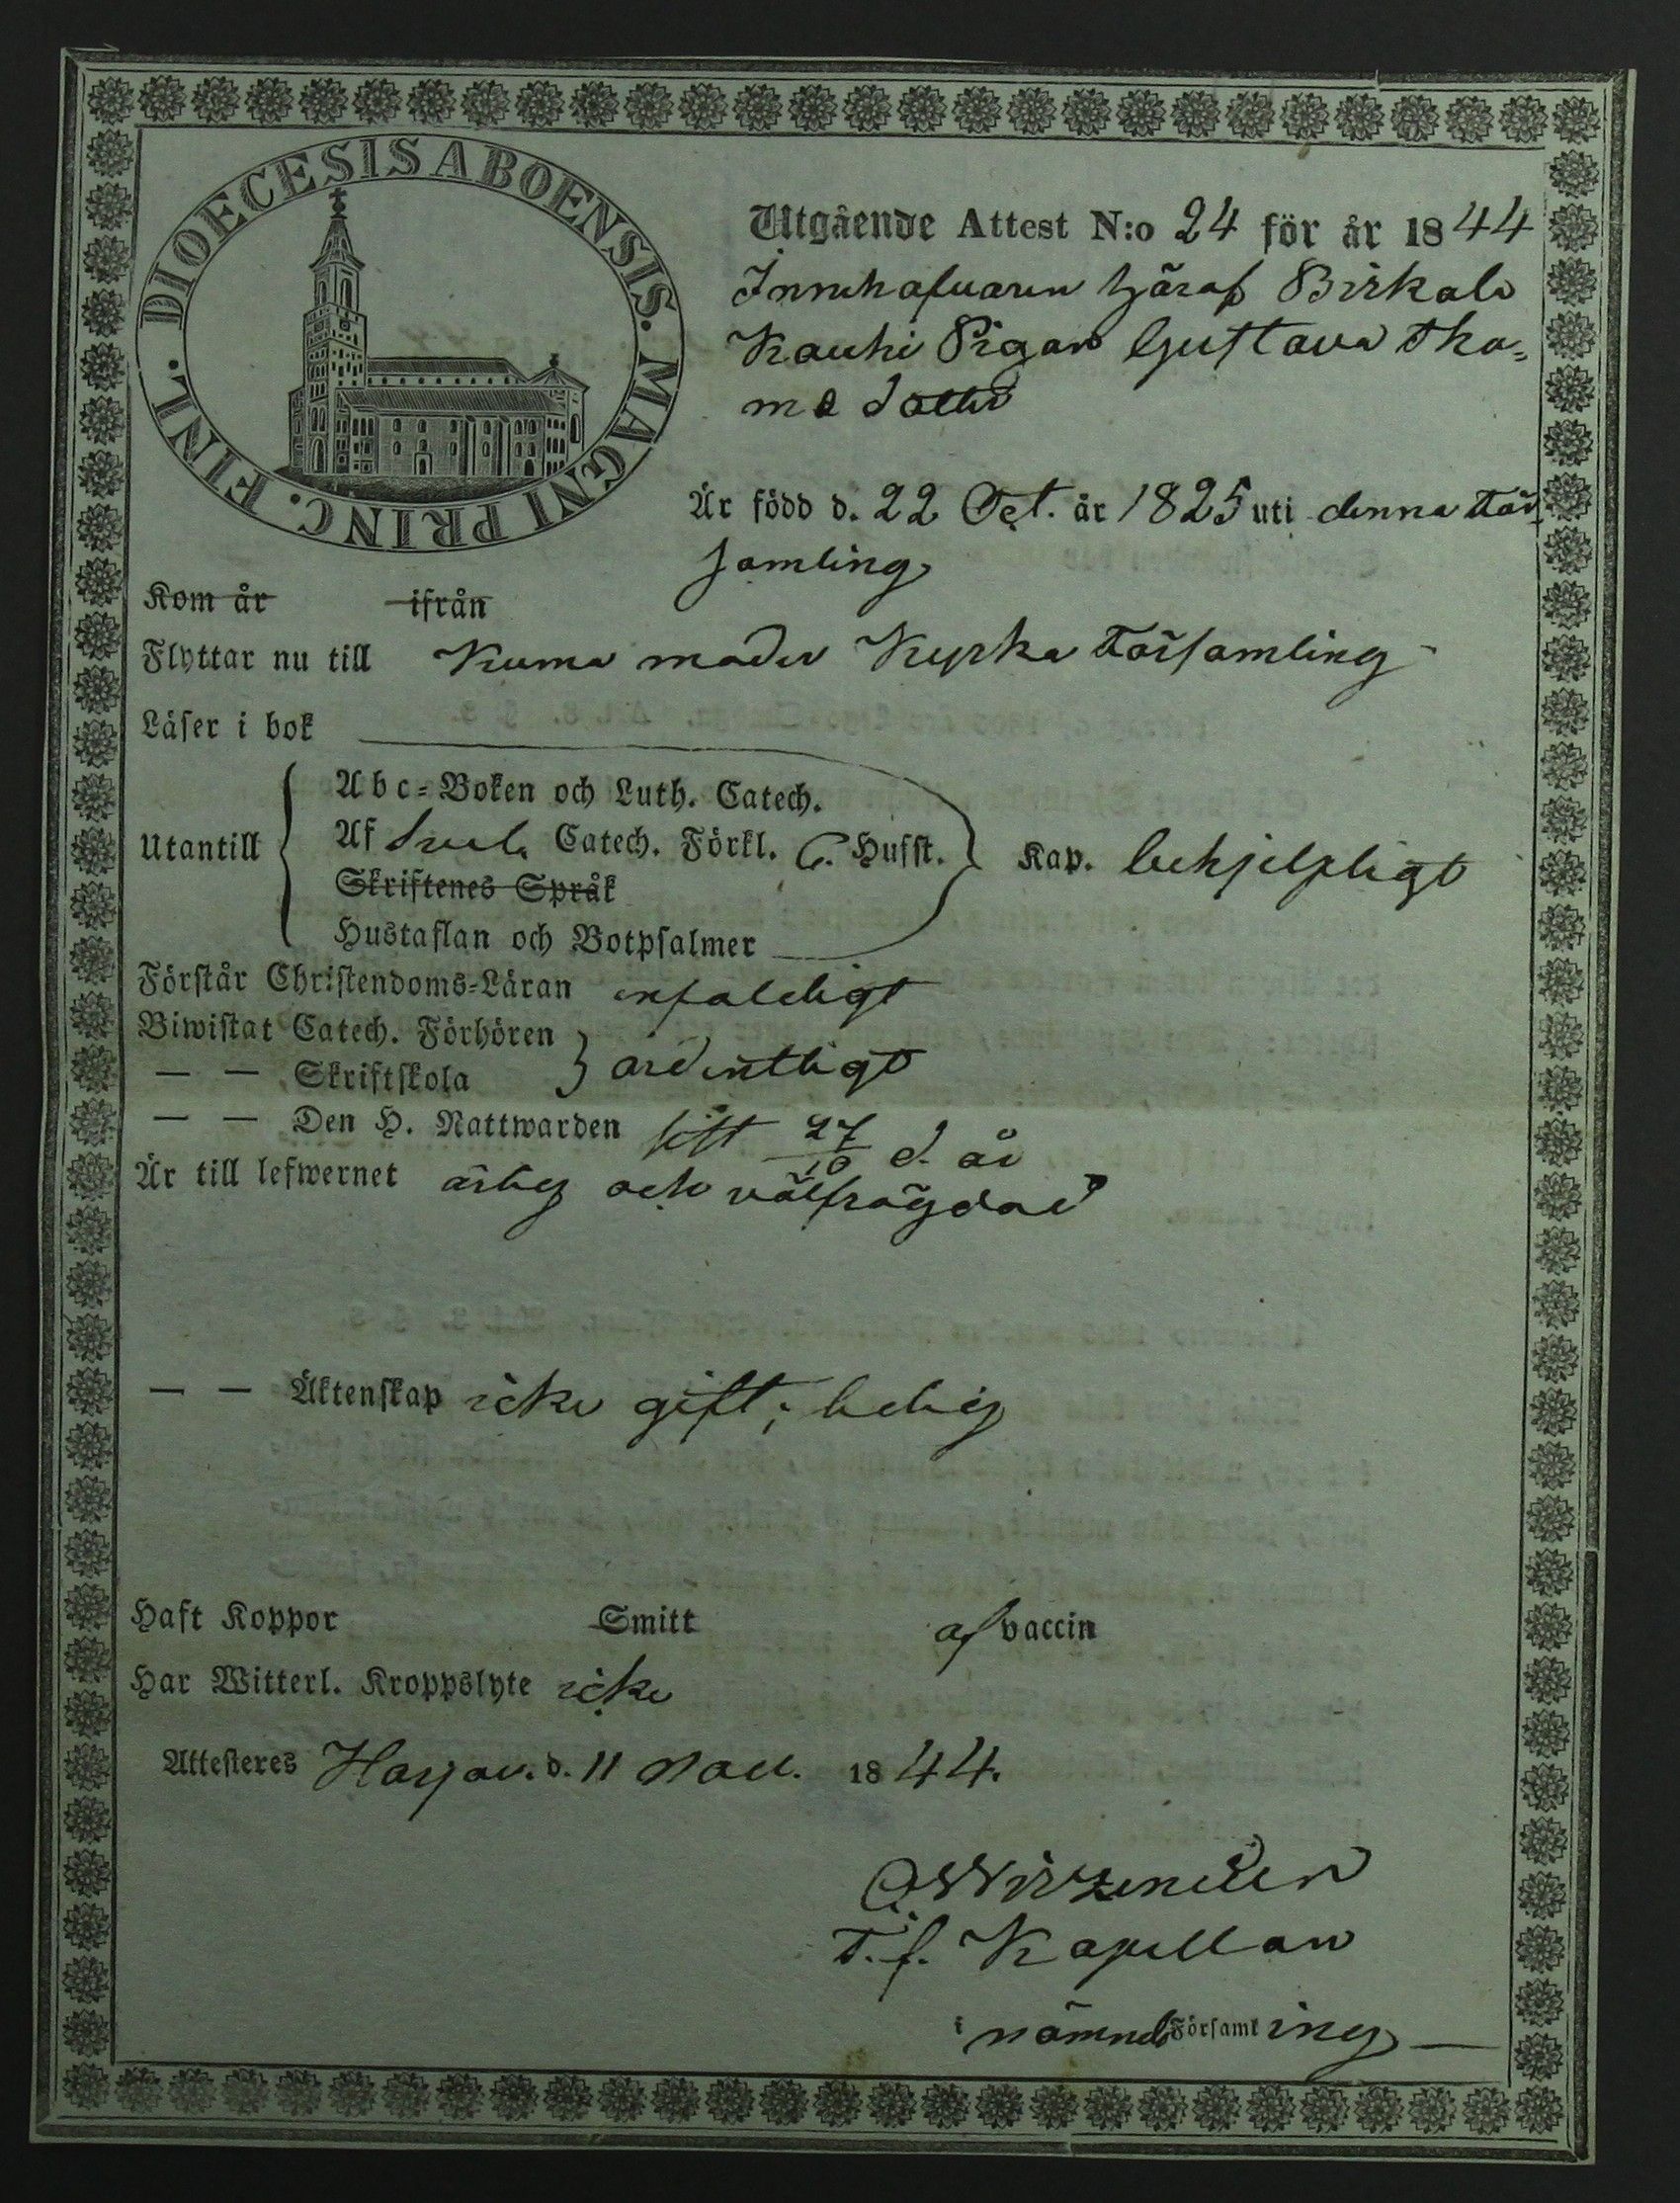 DIOECESIS ABOENSIS. MAGNI PRINC. FINL.
Utgående Attest N:o 24 för år 1844
Innehafvaren häraf Birkala
Kauhi Pigan Gustava Tho-
mä dotter
Är född d. 22 Oct. år 1825 uti denna För
samling
Kom år ifrån
Flyttar nu till Kumo moder Kyrko Församling
Läser i bok
Abc-Boken och Luth. Catech.
Utantill Af Catech. Förkl. Hufst. Kap. behjelpligt
Skriftenes Språk
Hustaflan och Botpsalmer
Förstår Christendoms-Läran enfaldigt
Biwistat Catech. Förhören
— — Skriftskola ordentligt
— — Den H. Nattwarden sist 27/10 d. år
Är till lefwernet ärlig och välfrägdad
— — Äktenskap icke gift; ledig
Haft Koppor Smitt af vaccin
Har Witterl. Kroppslyte icke
Attesteres Harjav. d. 11 Nov. 1844.
T. f. Kapellan
i nämnde Församling